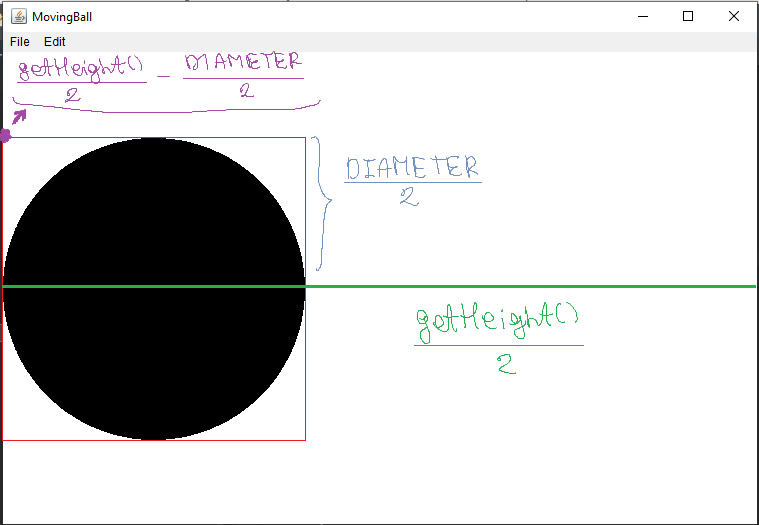 MovingBall
File Edit
getHeight() - DIAMETER
2 2
DIAMETER
2
getHeight()
2